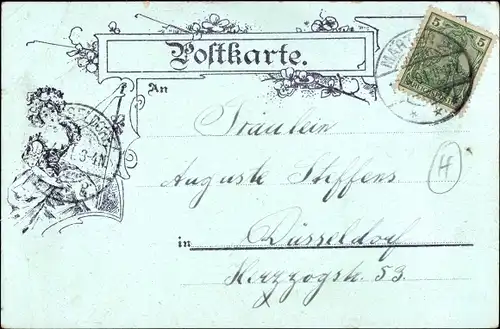 Postkarte.
5 5
An
Fräulein
Auguste Steffens
H
in Düsseldorf
Herzogstr. 53.